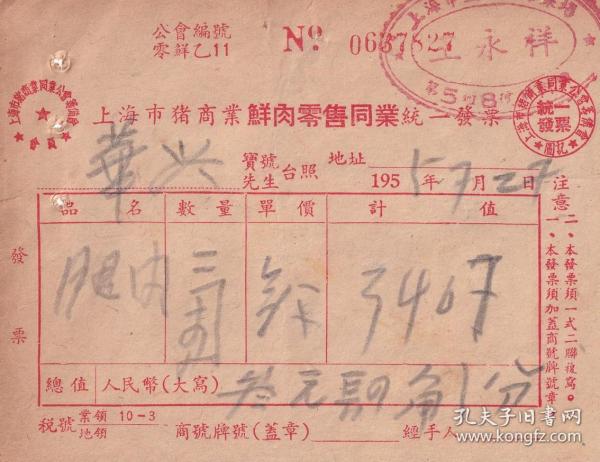 公會編號
零鮮乙11
№ 0637827
王永祥
第5付8河
上海市猪商業鮮肉零售同業統一發票
統一發票
華興 寶號 先生 台照 地址 1955年7月27日
品名 數量 單價 計值
腿肉
總值 人民幣(大寫) 叁元肆角1分
稅號 業領 地領 10-3 商號牌號(蓋章) 經手人
發票
注意
一、本發票須加蓋商號牌號章
二、本發票須一式二聯複寫。
孔夫子旧书网
www.kongfz.com